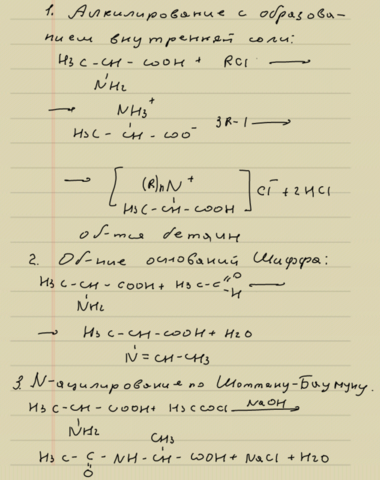 1. Алкилирование с образова-
нием внутренней соли:
H3C-CH-COOH + RCl ⟶
NH2
⟶ NH3+
H3C-CH-COO- 3R-I ⟶
⟶ [(R)nN+
H3C-CH-COOH] Cl- + 2HCl
об-тся бетаин
2. Об-ние оснований Шиффа:
H3C-CH-COOH + H3C-C=O ⟶
NH2 H
⟶ H3C-CH-COOH + H2O
N=CH-CH3
3. N-ацилирование по Шоттану-Бауману.
H3C-CH-COOH + H3CCOCl NaOH ⟶
NH2 CH3
H3C-C-NH-CH-COOH + NaCl + H2O
O